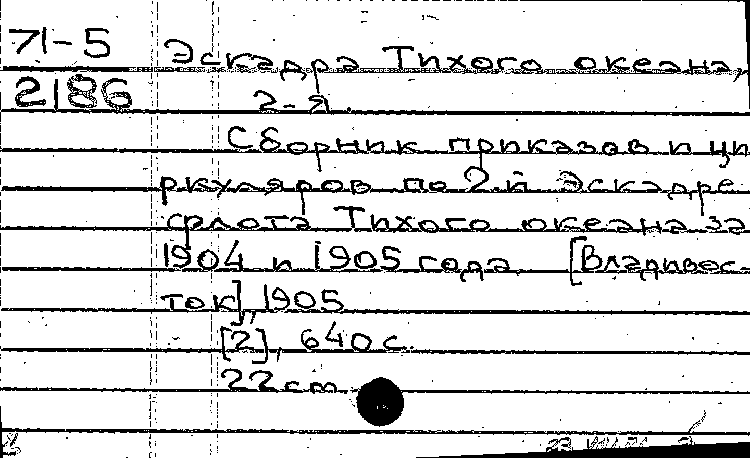 71-5 Эскадра Тихого океана,
2186 2-я.
Сборник приказов и ци
ркуляров по 2-й Эскадре
флота Тихого океана за
1904 и 1905 года [Владивос-
ток], 1905
[2], 640 с.
22 cm